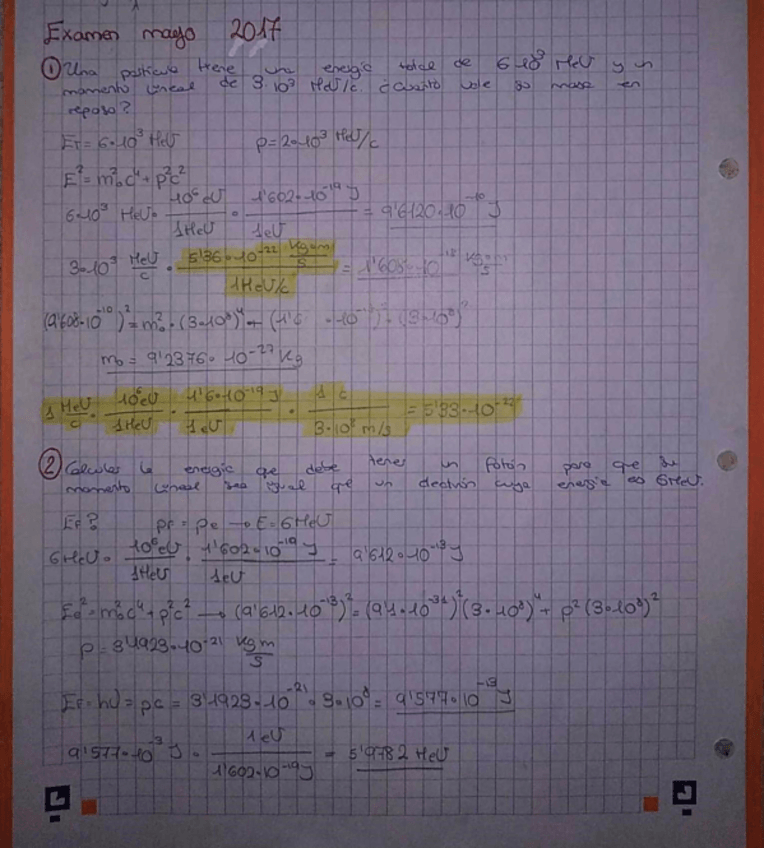 Examen mayo 2017
① Una partícula tiene una energía total de 6·10³ MeV y un
momento lineal de 3·10³ MeV/c ¿Cuánto vale su masa en
reposo?
E_T = 6·10³ MeV p = 2·10³ MeV/c
E² = m₀²c⁴ + p²c²
6·10³ MeV · 10⁶ eV / 1 MeV · 1'602·10⁻¹⁹ J / 1 eV = 9'6120·10⁻¹⁰ J
3·10³ MeV/c · 5'36·10⁻²² kg·m/s / 1 MeV/c = 1'608·10⁻¹⁸ kg·m/s
(9'608·10⁻¹⁰)² = m₀² · (3·10⁸)⁴ + (1'6 ·10⁻¹⁸)² · (3·10⁸)²
m₀ = 9'2376·10⁻²⁷ kg
1 MeV/c · 10⁶ eV / 1 MeV · 1'6·10⁻¹⁹ J / 1 eV · 1 c / 3·10⁸ m/s = 5'33·10⁻²²
② Calcular la energía que debe tener un fotón para que su
momento lineal sea igual que un electrón cuya energía es 6 MeV.
E_F? p_F = p_e → E = 6 MeV
6 MeV · 10⁶ eV / 1 MeV · 1'602·10⁻¹⁹ J / 1 eV = 9'612·10⁻¹³ J
E_e² = m₀²c⁴ + p²c² → (9'612·10⁻¹³)² = (9'1·10⁻³¹)² (3·10⁸)⁴ + p² (3·10⁸)²
p = 3'1923·10⁻²¹ kg m/s
E_F = hν = pc = 3'1923·10⁻²¹ · 3·10⁸ = 9'577·10⁻¹³ J
9'577·10⁻¹³ J · 1 eV / 1'602·10⁻¹⁹ J = 5'9782 MeV